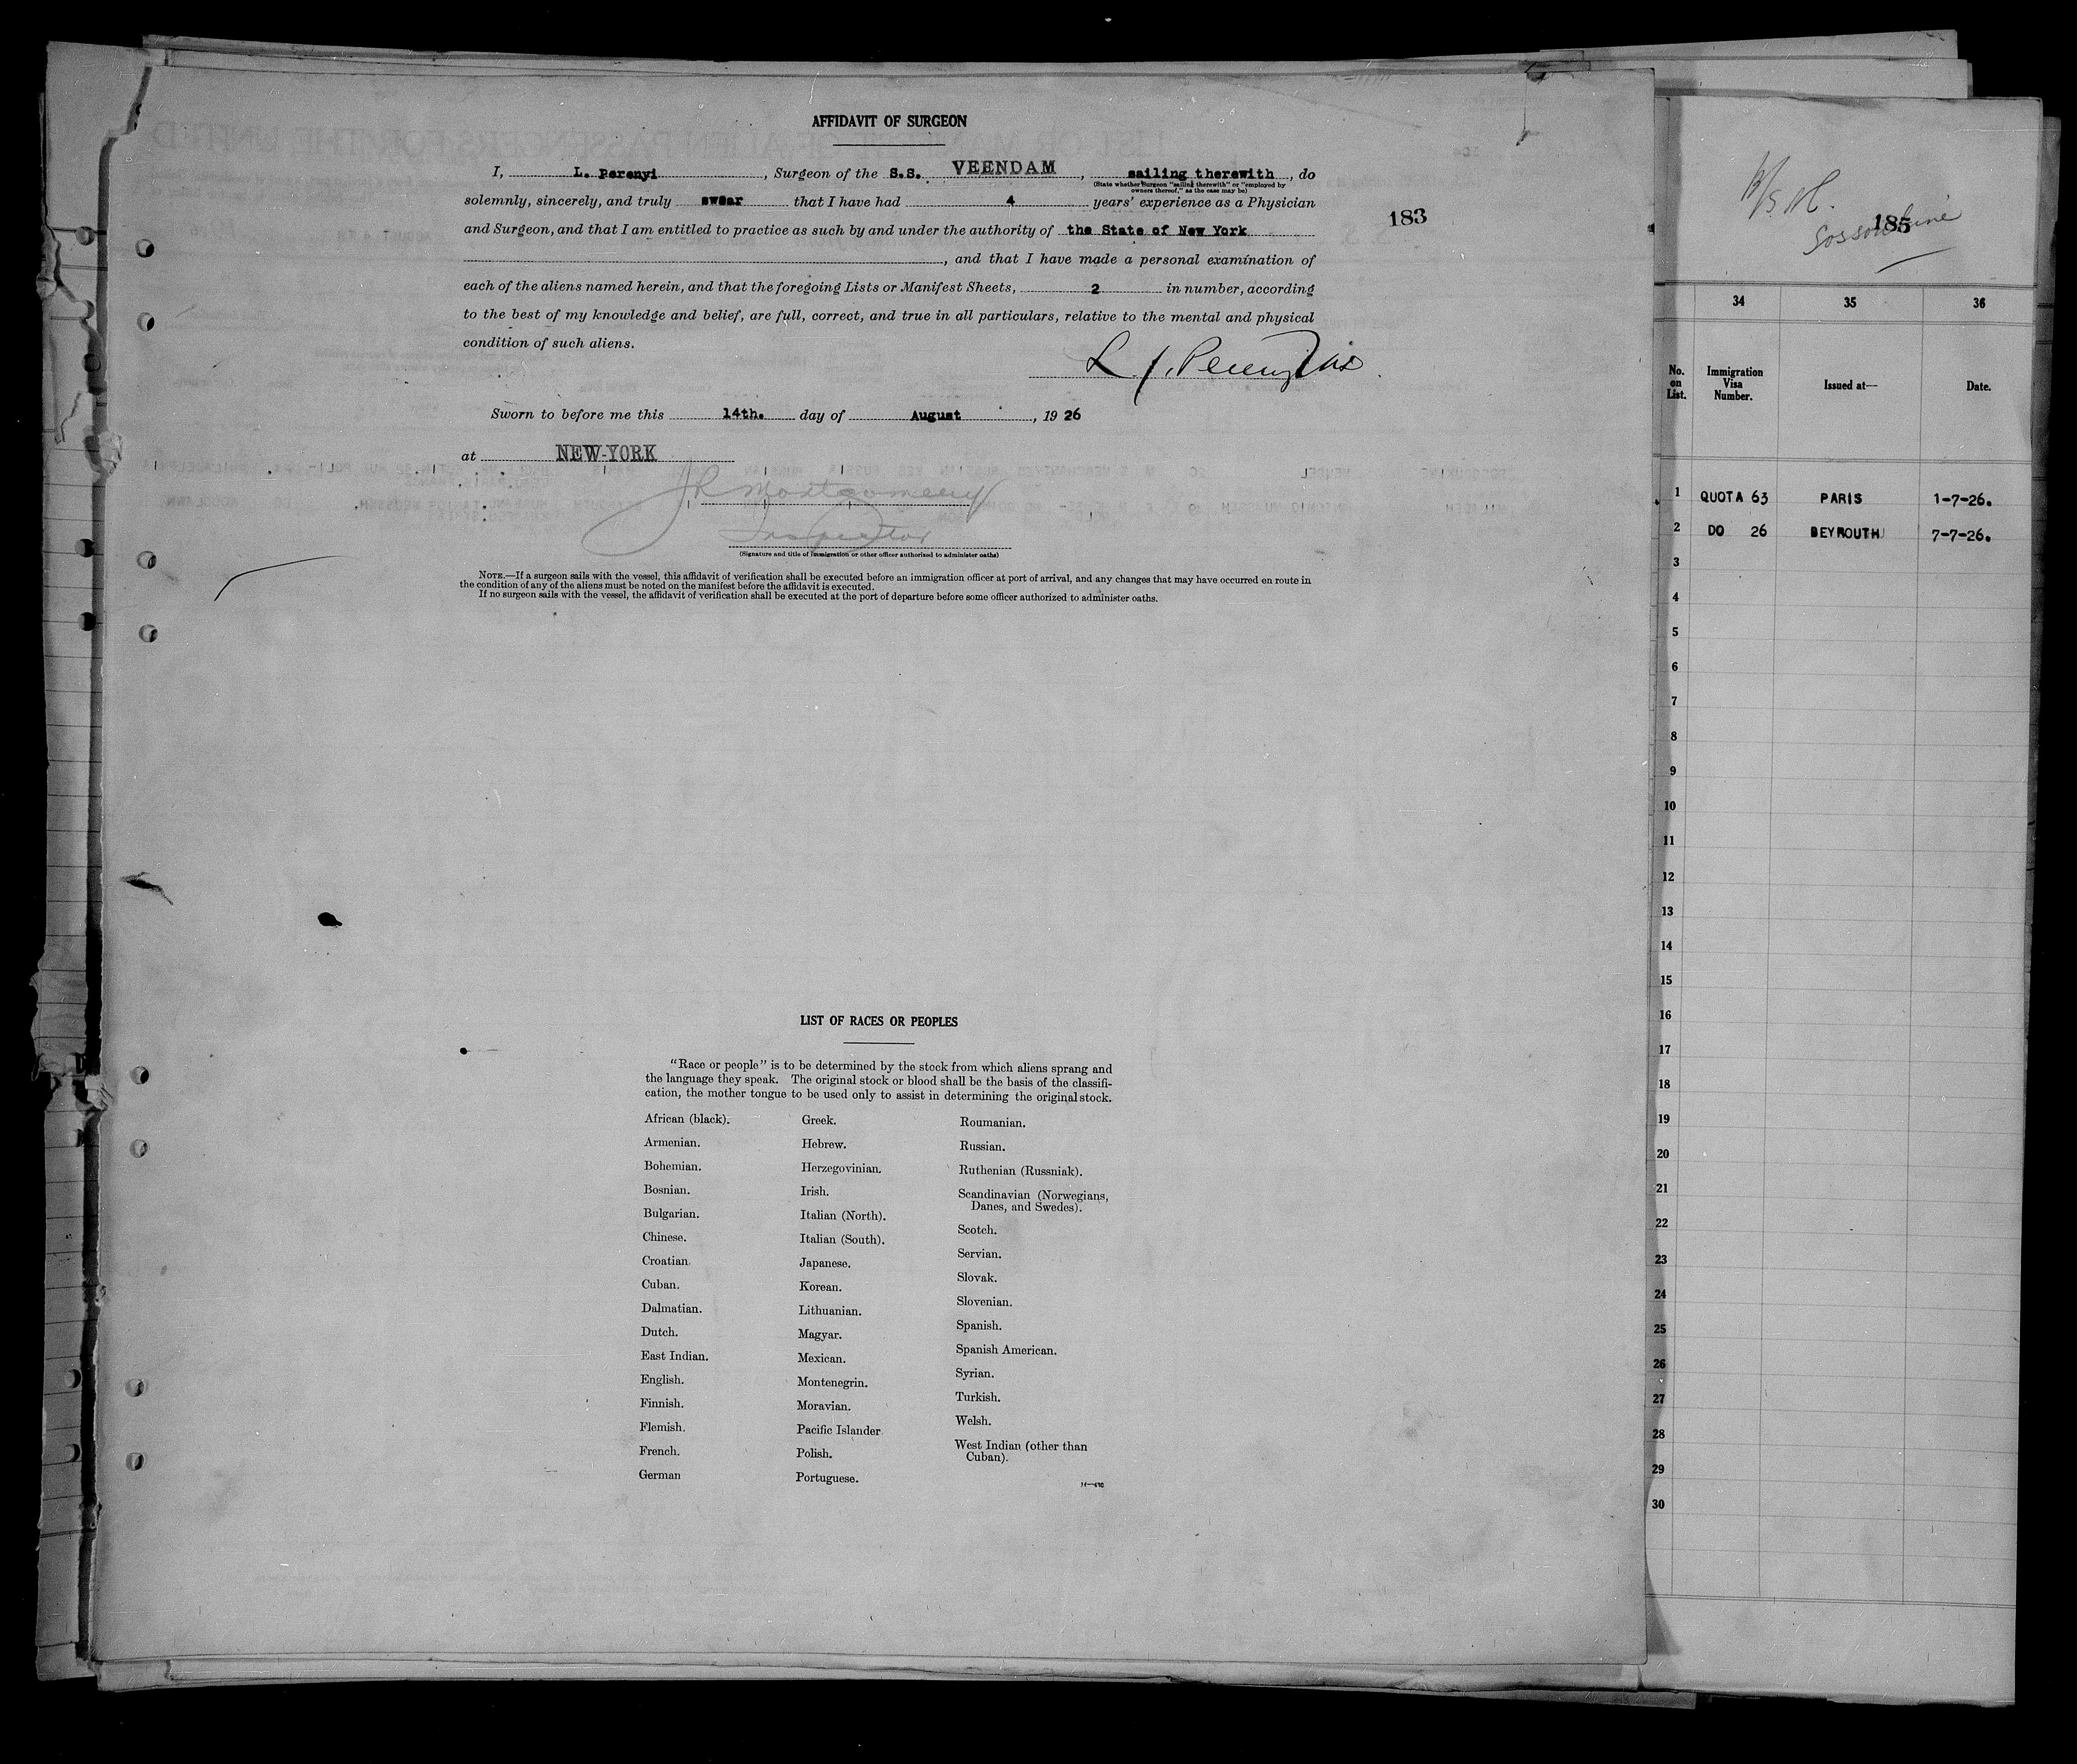 AFFIDAVIT OF SURGEON
I, L. Perenyi, Surgeon of the S.S. VEENDAM, sailing therewith, do
(State whether Surgeon "sailing therewith" or "employed by
owners thereof," as the case may be)
solemnly, sincerely, and truly swear that I have had 4 years' experience as a Physician
and Surgeon, and that I am entitled to practice as such by and under the authority of the State of New York
, and that I have made a personal examination of
each of the aliens named herein, and that the foregoing Lists or Manifest Sheets, 2 in number, according
to the best of my knowledge and belief, are full, correct, and true in all particulars, relative to the mental and physical
condition of such aliens.
Sworn to before me this 14th. day of August, 1926
at NEW-YORK
JR Montgomery
Inspector
(Signature and title of immigration or other officer authorized to administer oaths)
NOTE.—If a surgeon sails with the vessel, this affidavit of verification shall be executed before an immigration officer at port of arrival, and any changes that may have occurred en route in
the condition of any of the aliens must be noted on the manifest before the affidavit is executed.
If no surgeon sails with the vessel, the affidavit of verification shall be executed at the port of departure before some officer authorized to administer oaths.
183
LIST OF RACES OR PEOPLES
"Race or people" is to be determined by the stock from which aliens sprang and
the language they speak. The original stock or blood shall be the basis of the classifi-
cation, the mother tongue to be used only to assist in determining the original stock.
African (black).
Armenian.
Bohemian.
Bosnian.
Bulgarian.
Chinese.
Croatian.
Cuban.
Dalmatian.
Dutch.
East Indian.
English.
Finnish.
Flemish.
French.
German
Greek.
Hebrew.
Herzegovinian.
Irish.
Italian (North).
Italian (South).
Japanese.
Korean.
Lithuanian.
Magyar.
Mexican.
Montenegrin.
Moravian.
Pacific Islander
Polish.
Portuguese.
Roumanian.
Russian.
Ruthenian (Russniak).
Scandinavian (Norwegians,
Danes, and Swedes).
Scotch.
Servian.
Slovak.
Slovenian.
Spanish.
Spanish American.
Syrian.
Turkish.
Welsh.
West Indian (other than
Cuban).
185
34 35 36
No. on List. Immigration Visa Number. Issued at— Date.
1 QUOTA 63 PARIS 1-7-26.
2 DO 26 BEYROUTH 7-7-26.
3
4
5
6
7
8
9
10
11
12
13
14
15
16
17
18
19
20
21
22
23
24
25
26
27
28
29
30